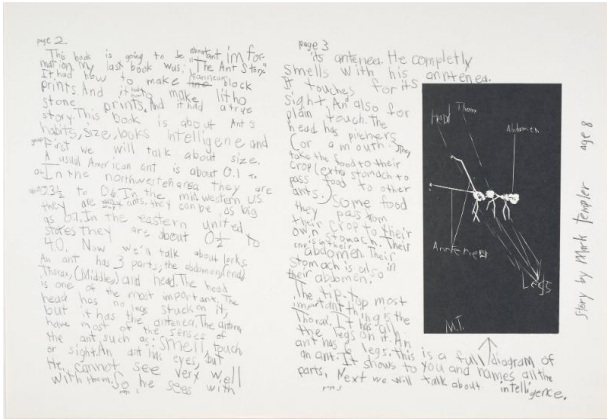 page 2
This book is going to be about ant infor-
mation. My last book was: "The Ant Story"
It had how to make block
prints. And it had to make litho
stone prints. And it had a true
story. This book is about Ants
habits, size, looks intelligence and
First we will talk about size.
A usual American ant is about 0.1 to
In the northwestern area they are
to 0.4 In the midwestern US
they are ants. the can be as big
as 0.7. In the eastern united
states they are about 0.2 to
4.0. Now we'll talk about looks.
An ant has 3 parts; the abdomen, (end)
Thorax, (Middle) and head. The head
is one of the most important. The
head has no legs stuck on it,
but it has the antenea. The antena
have most of the senses of
the ant such as: Smell, touch
or sight. An ant has eyes, but
He cannot see very well
with them, so he sees with
page 3
its antenea. He completly
smells with his anntenea.
It touches for its
sight. An also for
plain touch. The
head has pinchers
(or a mouth. They
take the food to their
crop (extra stomach to
pass food to other
ants.) Some food
they pass from
their crop to their
own stomach. Their
abdomen. Their
stomach is also in
their abdomen.
The tip-top most
important thing is the
Thorax. It has all
the legs on it. An
ant has 6 legs. This is a full diagram of
an ant. It shows to you and names all the
parts. Next we will talk about intelligence.
Head
Thorax
Abdomen
Anntenea
Legs
M.T.
Story by Mark Templer age 8